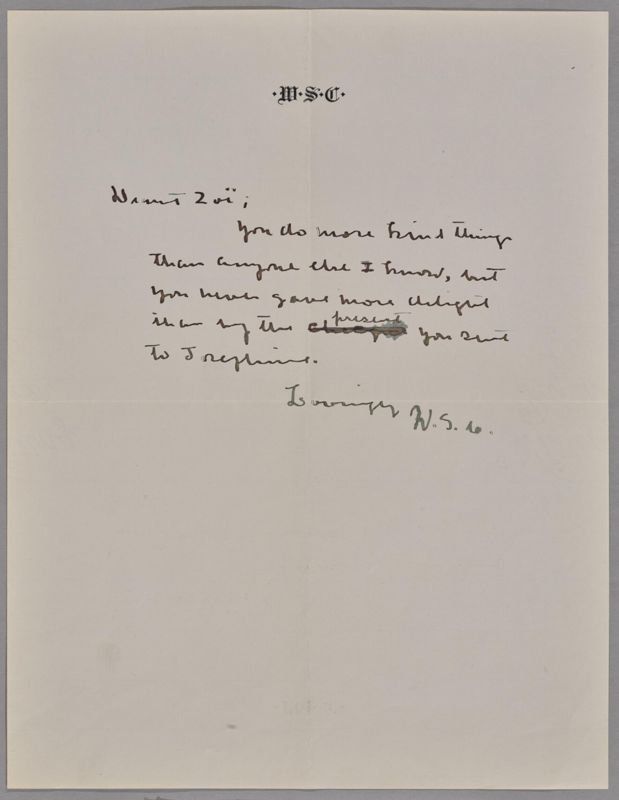 ·W·S·C·
Dearest Zoë;
You do more kind things
than anyone else I know, but
you never gave more delight
than by the present you sent
to Josephine.
Lovingly W.S.C.